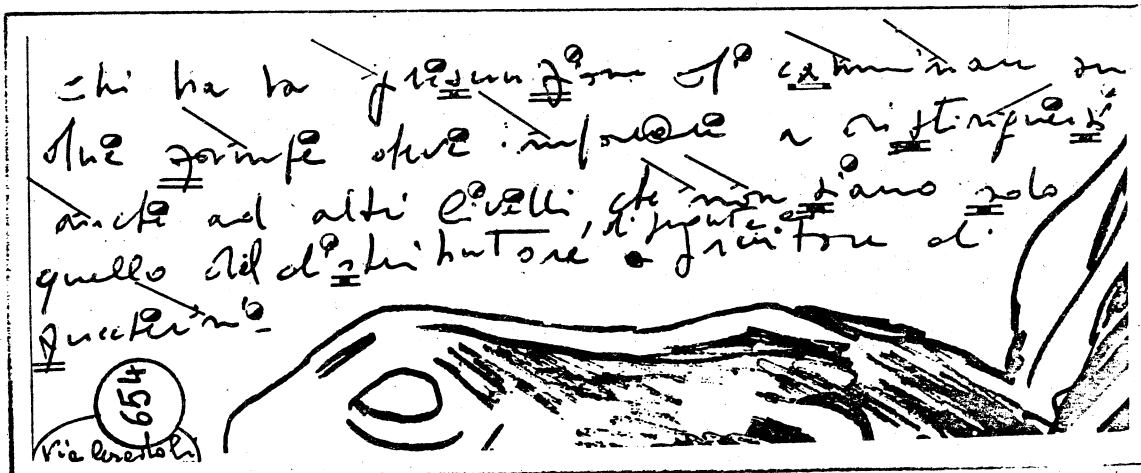 chi ha la presunzione di camminare su
due zampe deve imparare a distinguersi
anche ad altri livelli, che non siano solo
quello del distributore e fruitore di
zuccherini
654
Via